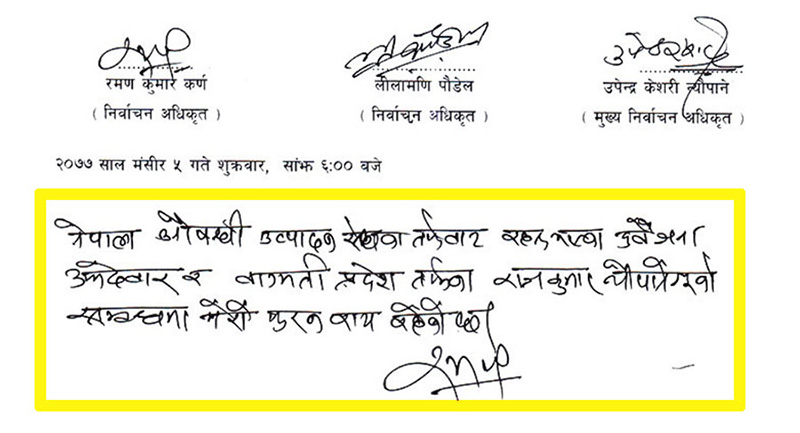 रमण कुमार कर्ण लीलामणि पौडेल उपेन्द्र केशरी न्यौपाने
( निर्वाचन अधिकृत ) ( निर्वाचन अधिकृत ) ( मुख्य निर्वाचन अधिकृत )
२०७७ साल मंसिर ५ गते शुक्रवार, सांझ ६:०० बजे
नेपाली औषधी उत्पादन तर्फबाट
उम्मेदवार र बागमती प्रदेश तर्फका राजकुमार
सम्बन्धमा मेरो फरक राय रहेको छ।